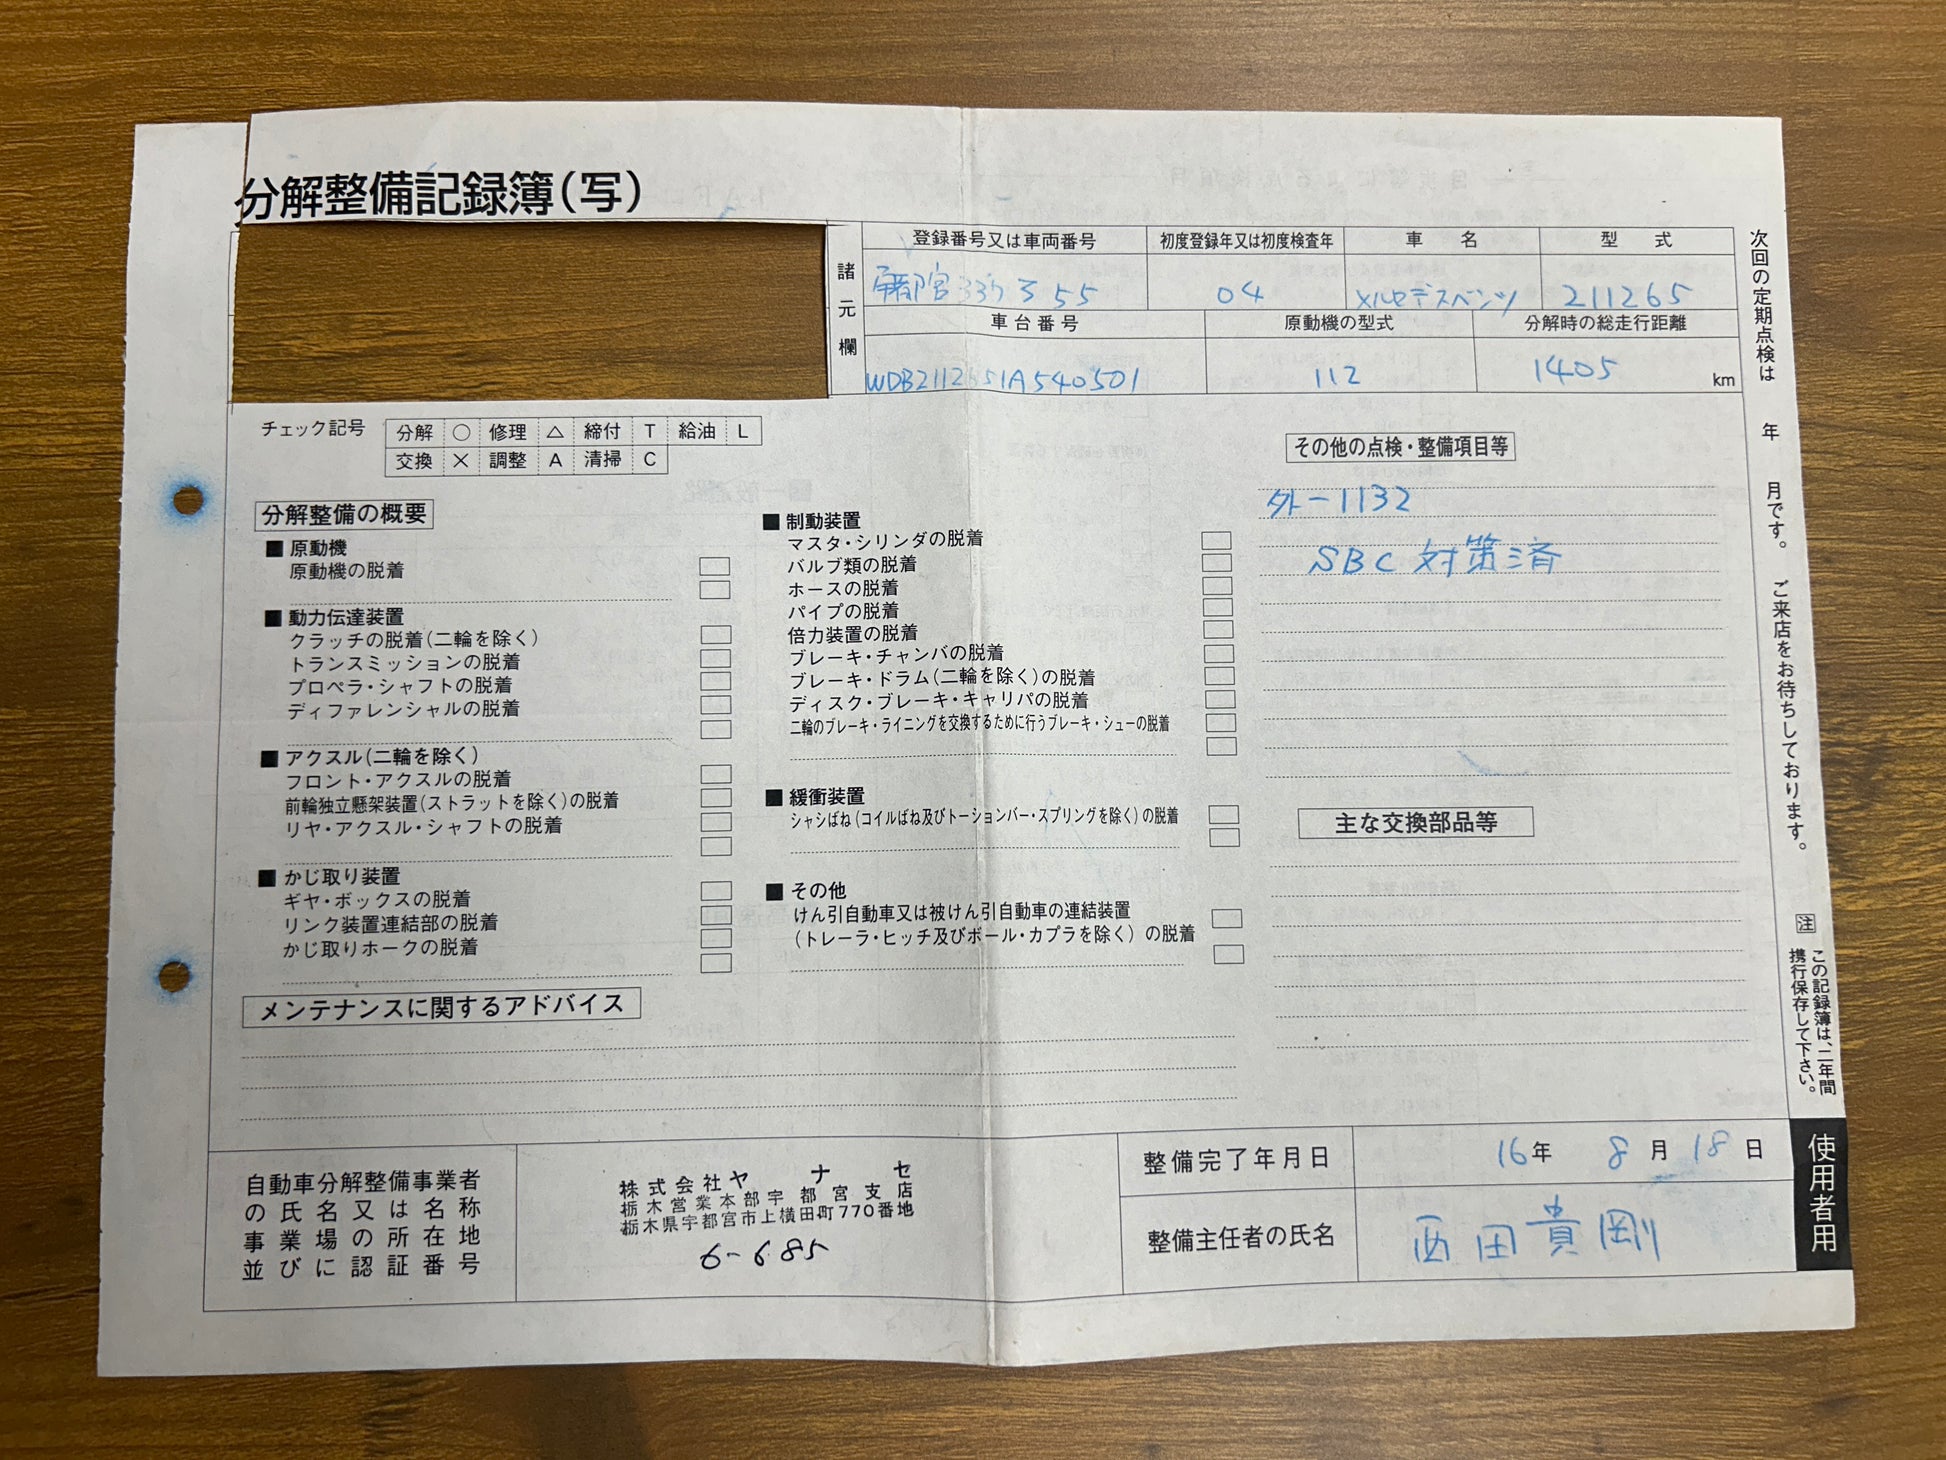 分解整備記録簿(写)
諸元欄
登録番号又は車両番号 初度登録年又は初度検査年 車名 型式
宇都宮 55 04 メルセデスベンツ 211265
車台番号 原動機の型式 分解時の総走行距離
WDB2112651A540501 112 1405 km
チェック記号 分解 ○ 修理 △ 締付 T 給油 L
交換 × 調整 A 清掃 C
分解整備の概要
■ 原動機
原動機の脱着
■ 動力伝達装置
クラッチの脱着(二輪を除く)
トランスミッションの脱着
プロペラ・シャフトの脱着
ディファレンシャルの脱着
■ アクスル(二輪を除く)
フロント・アクスルの脱着
前輪独立懸架装置(ストラットを除く)の脱着
リヤ・アクスル・シャフトの脱着
■ かじ取り装置
ギヤ・ボックスの脱着
リンク装置連結部の脱着
かじ取りホークの脱着
■ 制動装置
マスタ・シリンダの脱着
バルブ類の脱着
ホースの脱着
パイプの脱着
倍力装置の脱着
ブレーキ・チャンバの脱着
ブレーキ・ドラム(二輪を除く)の脱着
ディスク・ブレーキ・キャリパの脱着
二輪のブレーキ・ライニングを交換するために行うブレーキ・シューの脱着
■ 緩衝装置
シャシばね(コイルばね及びトーションバー・スプリングを除く)の脱着
■ その他
けん引自動車又は被けん引自動車の連結装置
(トレーラ・ヒッチ及びボール・カプラを除く)の脱着
その他の点検・整備項目等
外-1132
SBC 対策済
主な交換部品等
メンテナンスに関するアドバイス
自動車分解整備事業者
の氏名又は名称
事業場の所在地
並びに認証番号
株式会社ヤナセ
栃木営業本部宇都宮支店
栃木県宇都宮市上横田町770番地
6-685
整備完了年月日 16年 8月 18日
整備主任者の氏名 西田貴剛
次回の定期点検は 年 月です。 ご来店をお待ちしております。
注 この記録簿は、二年間
携行保存して下さい。
使用者用